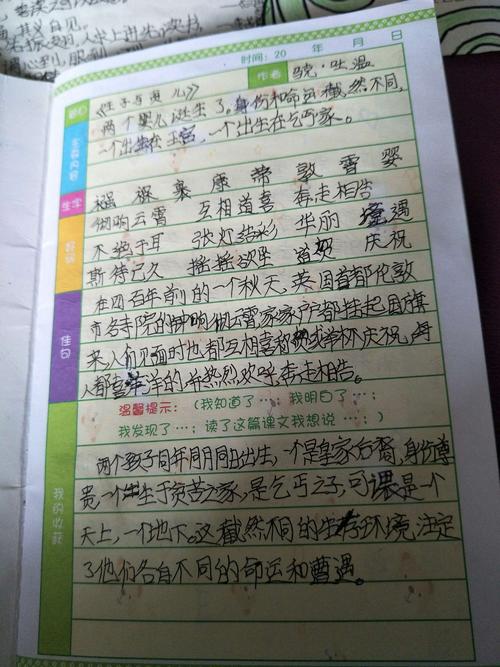 时间：20 年 月 日
《王子与贫儿》
作者 马克·吐温
主要内容
两个婴儿诞生了。身份和命运截然不同，
一个出生在王宫，一个出生在乞丐家。
生字
襁 褓 襄 康 蒂 敦 霄 婴
好词
响彻云霄 互相道喜 奔走相告
不绝于耳 张灯结彩 华丽 遭遇
斯特已久 摇摇欲坠 道贺 庆祝
佳句
在四百年前的一个秋天，英国首都伦敦
市各寺院的钟响彻云霄家家户户都挂起国旗
来，人们见面时也都互相喜称或举杯庆祝，每
人都喜洋洋的 热烈欢呼奔走相告。
温馨提示：（我知道了…；我明白了…；
我发现了…；读了这篇课文我想说…；）
我的收获
两个孩子同年同月同日出生，一个是皇家后裔，身份尊
贵，一个生于贫苦之家，是乞丐之子，可谓是一个
天上，一个地下。这截然不同的生存环境，注定
了他们各自不同的命运和曹遇。